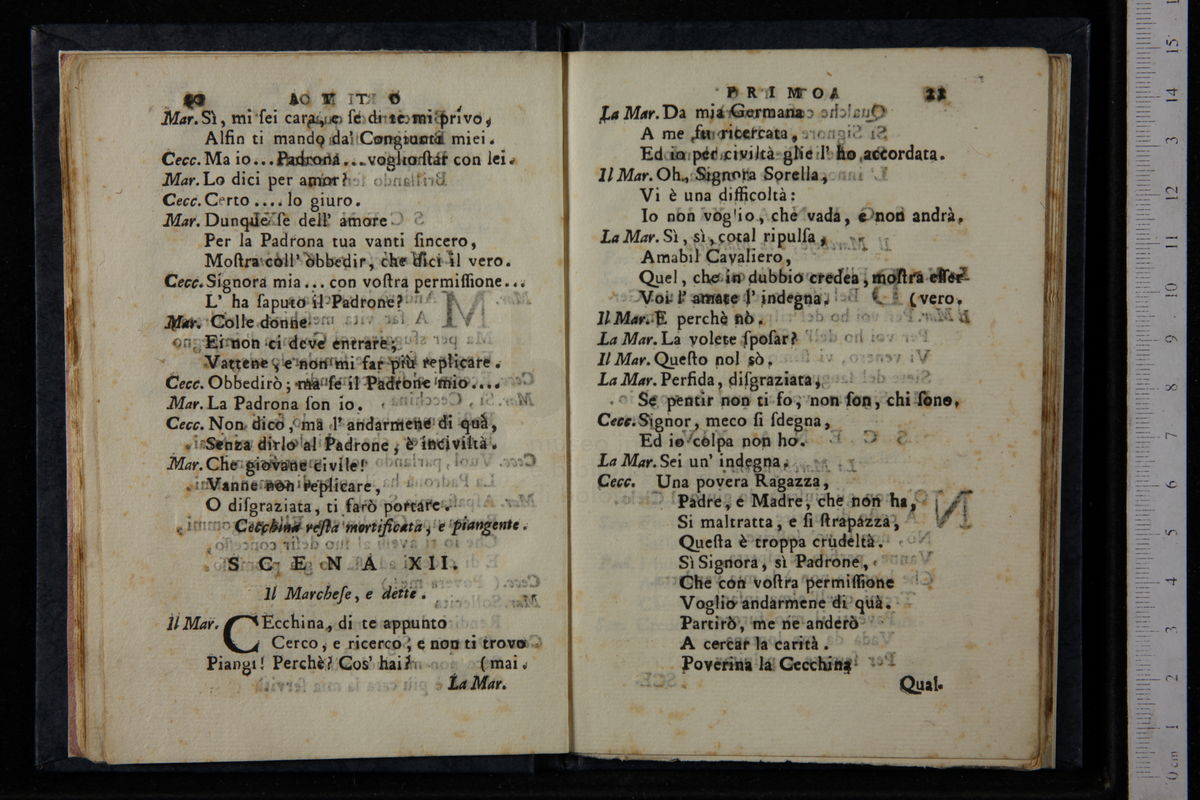 20 A T T O
Mar. Sì, mi ſei cara, e ſe di te mi privo,
Alfin ti mando da' Congiunti miei.
Cecc. Ma io... Padrona... voglio ſtar con lei.
Mar. Lo dici per amor?
Cecc. Certo .... lo giuro.
Mar. Dunque ſe dell' amore
Per la Padrona tua vanti ſincero,
Moſtra coll' obbedir, che dici il vero.
Cecc. Signora mia... con voſtra permiſſione...
L' ha ſaputo il Padrone?
Mar. Colle donne
Ei non ci deve entrare;
Vattene, e non mi far più replicare.
Cecc. Obbedirò; ma ſe il Padrone mio....
Mar. La Padrona ſon io.
Cecc. Non dico, ma l' andarmene di quà,
Senza dirlo al Padrone, è inciviltà.
Mar. Che giovane civile!
Vanne non replicare,
O diſgraziata, ti farò portare.
Cecchina reſta mortificata, e piangente.
S C E N A XII.
Il Marcheſe, e dette.
Il Mar. CEcchina, di te appunto
Cerco, e ricerco, e non ti trovo
Piangi! Perchè? Cos' hai? (mai.
La Mar.
P R I M O 21
La Mar. Da mia Germana
A me fu ricercata,
Ed io per civiltà glie l' ho accordata.
Il Mar. Oh, Signora Sorella,
Vi è una difficoltà:
Io non vog'io, che vada, e non andrà.
La Mar. Sì, sì, cotal ripulſa,
Amabil Cavaliero,
Quel, che in dubbio credea, moſtra eſſer
Voi l' amate l' indegna. (vero.
Il Mar. E perchè nò.
La Mar. La volete ſpoſar?
Il Mar. Queſto nol sò.
La Mar. Perfida, diſgraziata,
Se pentir non ti fo, non ſon, chi ſono.
Cecc. Signor, meco ſi ſdegna,
Ed io colpa non ho.
La Mar. Sei un' indegna.
Cecc. Una povera Ragazza,
Padre, e Madre, che non ha,
Si maltratta, e ſi ſtrapazza,
Queſta è troppa crudeltà.
Sì Signora, sì Padrone,
Che con voſtra permiſſione
Voglio andarmene di quà.
Partirò, me ne anderò
A cercar la carità.
Poverina la Cecchina
Qual-